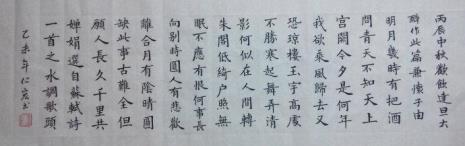 丙辰中秋歡飲達旦大
醉作此篇兼懷子由
明月幾時有把酒
問青天不知天上
宫闕今夕是何年
我欲乘風歸去又
恐瓊樓玉宇高處
不勝寒起舞弄清
影何似在人間轉
朱閣低綺户照無
眠不應有恨何事長
向别時圓人有悲歡
離合月有陰晴圓
缺此事古難全但
願人長久千里共
嬋娟選自蘇軾詩
一首之水調歌頭
乙未年仁